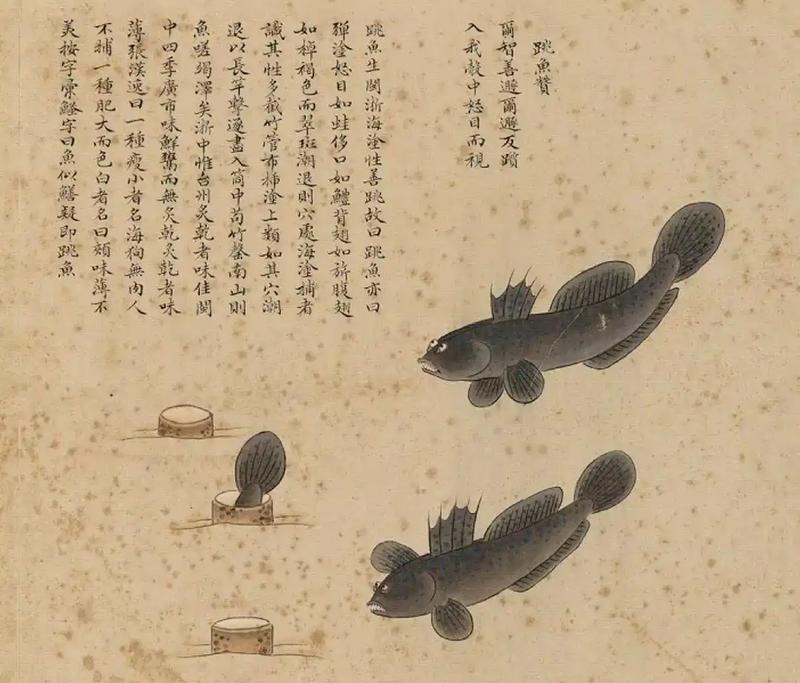 跳魚贊
爾智善避爾避反躓
入我彀中怒目而視
跳魚生閩浙海塗性善跳故曰跳魚亦曰
彈塗怒目如蛙侈口如鱧背翅如旂腹翅
如棹褐色而翠斑潮退則穴處海塗捕者
識其性多截竹管布插塗上類如其穴潮
退以長竿擊逐盡入筒中苟竹罄南山則
魚嗟竭澤矣浙中惟台州炙乾者味佳閩
中四季廣市味鮮鷙而無炙乾炙乾者味
薄張漢逸曰一種瘦小者名海狗無肉人
不捕一種肥大而色白者名曰頰味薄不
美按字彙鰼字曰魚似鱔疑即跳魚